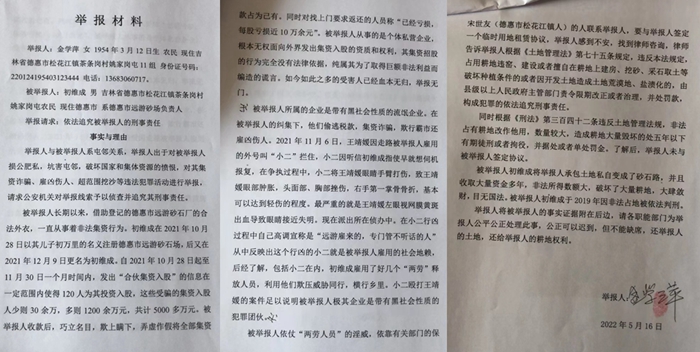 举报材料
举报人：金学萍 女 1954年3月12日生 农民 现住吉
林省德惠市松花江镇茶条岗村姚家岗屯11组 身份证号码：
220124195403123444 电话：13683060717。
被举报人：初维成 男 吉林省德惠市松花江镇茶条岗村
姚家岗屯农民 现住德惠市 系德惠市远游砂场负责人
举报请求：依法追究被举报人的刑事责任
事实与理由
举报人与被举报人系屯邻关系，举报人出于对被举报人
损公肥私，坑害屯邻，破坏国家和集体资源的愤恨，对其集
资诈骗、雇凶伤人、超范围挖沙等违法犯罪活动进行举报，
请求公安机关对举报线索予以侦查并追究其刑事责任。
被举报人长期以来，借助登记的德惠市远游砂石厂的合
法外衣，一直从事着非法集资行为，初维成在2021年10月
28日以其儿子初万里的名义注册德惠市远游砂场，后又在
2021年12月9日更名为初维成。自2021年10月28日起至
11月30日一个月时间内，发出“合伙集资入股”的信息在
一定范围内使得120人为其投资入股，这些受骗的集资入股
人少则30余万，多则1200余万元，共计5000多万元。被
举报人收款后，巧立名目，欺上瞒下，弄虚作假将全部集资
款占为已有。同时对找上门要求返还的人员称“已经亏损，
每股亏损近10万余元”。被举报人从事的是个体私营企业，
根本无权面向外界发出集资入股的资质和权利，其集资招股
的行为完全没有法律依据，纯属其为了取得巨额非法利益而
编造的谎言。如今如此之多的受害人已经血本无归，举报无
门。
被举报人所属的企业是带有黑社会性质的流氓企业。在
被举报人的纠集下，他们偷逃税款，集资诈骗，欺行霸市还
雇凶伤人，2021年11月6日，王靖媛因走路被举报人雇用
的外号叫“小二”拦住，小二因听信初维成指使早就想伺机
报复，在争执过程中，小二将王靖媛眼睛手臂打伤，致王靖
媛眼部肿胀，头面部、胸部挫伤，右手第一掌骨骨折，基本
可以达到轻伤的程度。最严重的就是王靖媛左眼视网膜黄斑
出血导致眼睛接近失明，现在派出所在侦办中。在小二行凶
过程中自己高调宣称是“远游雇来的，专门管不听话的人”
从中反映出这个行凶的小二就是被举报人雇用的社会地赖，
后经了解，包括小二在内，初维成雇用了好几个“两劳”释
放人员，利用他们欺压威胁同行，横行乡里，小二殴打王靖
媛的案件足以说明被举报人极其企业是带有黑社会性质的
犯罪团伙。
被举报人依仗“两劳人员”的淫威，依靠有关部门的保
宋世友（德惠市松花江镇人）的人联系举报人，要与举报人签定
一个临时用地租赁协议，举报人感到不安，找到律师咨询，律师
告诉举报人根据《土地管理法》第七十五条规定，违反本法规定，
占用耕地建窑、建设或者擅自在耕地上建房、挖砂、采石取土等
破坏种植条件的或者因开发土地造成土地荒漠化、盐渍化的，由
县级以上人民政府主管部门责令限期改正或者治理，并处罚款，
构成犯罪的依法追究刑事责任。
同时根据《刑法》第三百四十二条违反土地管理法规，非法
占有耕地改作他用，数量较大，造成耕地大量毁坏的处五年以下
有期徒刑或者拘役，并据处或者单处罚金，了解后，举报人未与
被举报人签定协议。
被举报人初维成将举报人承包土地私自变成了砂石路，并且
收取大量资金多年，非法所得数额大，破坏了大量耕地，大肆敛
财，目无国法，被举报人初维成于2019年因非法占地被依法判刑。
举报人将被举报人的事实证据附在后边，请各职能部门为举
报人公平公正处理此事，公正可以迟到，但不能缺席，还举报人
的土地，还给举报人的耕地权利。
举报人：金学萍
2022年5月16日